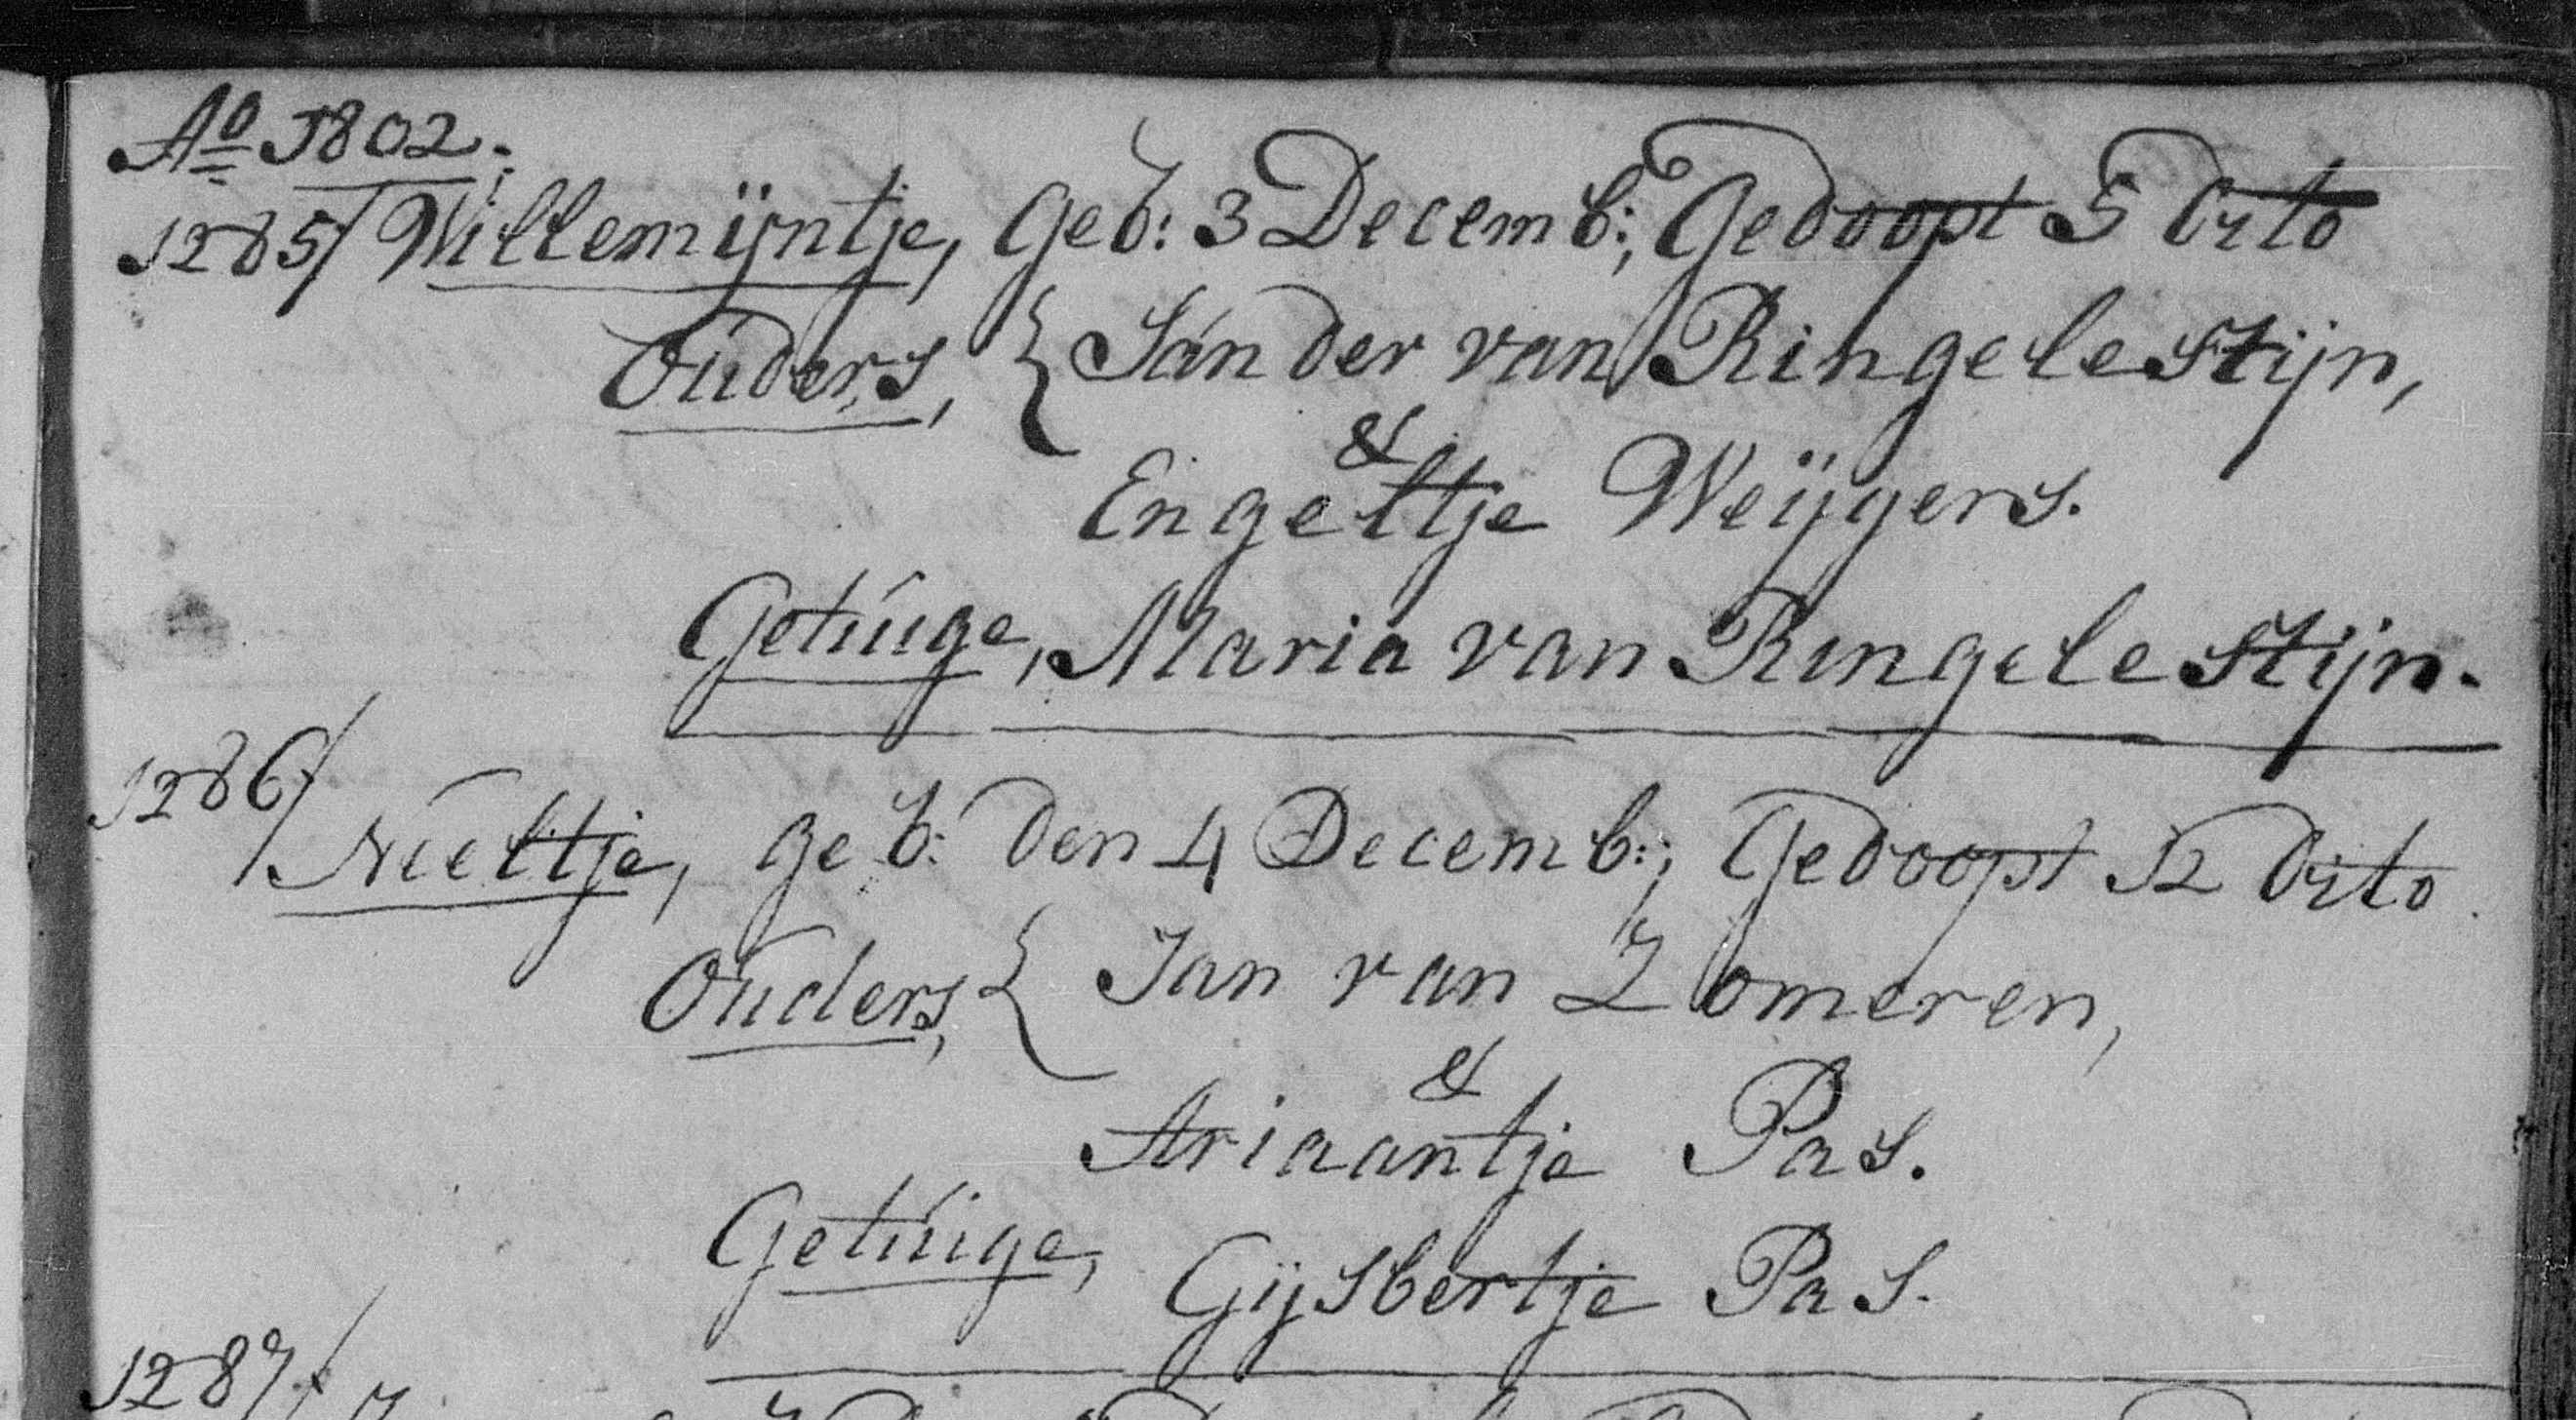 Aº 1802.
1285/ Willemijntje, geb: 3 Decemb:, Gedoopt 5 Dito
Ouders, { Sander van Ringelestijn,
&
Engeltje Weijgers.
Getuige, Maria van Ringelestijn.
1286/
Neeltje, geb: den 4 Decemb:, Gedoopt 12 Dito
Ouders, { Jan van Zomeren,
&
Ariaantje Pas.
Getuige, Gijsbertje Pas.
1287/